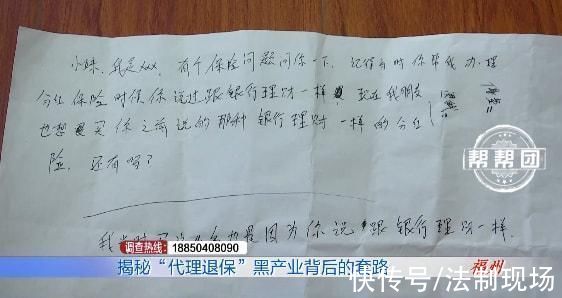 小妹，我是xx，有个保险问题问你一下，记得当时你帮我办理
分红保险时候你说过跟银行理财一样，现在我朋友
也想买你之前说的那种银行理财一样的分红
险，还有吗？
我当时
是因为你说跟银行理财一样．
帮帮团
调查热线：18850408090
揭秘“代理退保”黑产业背后的套路
福州
快传号/法制现场